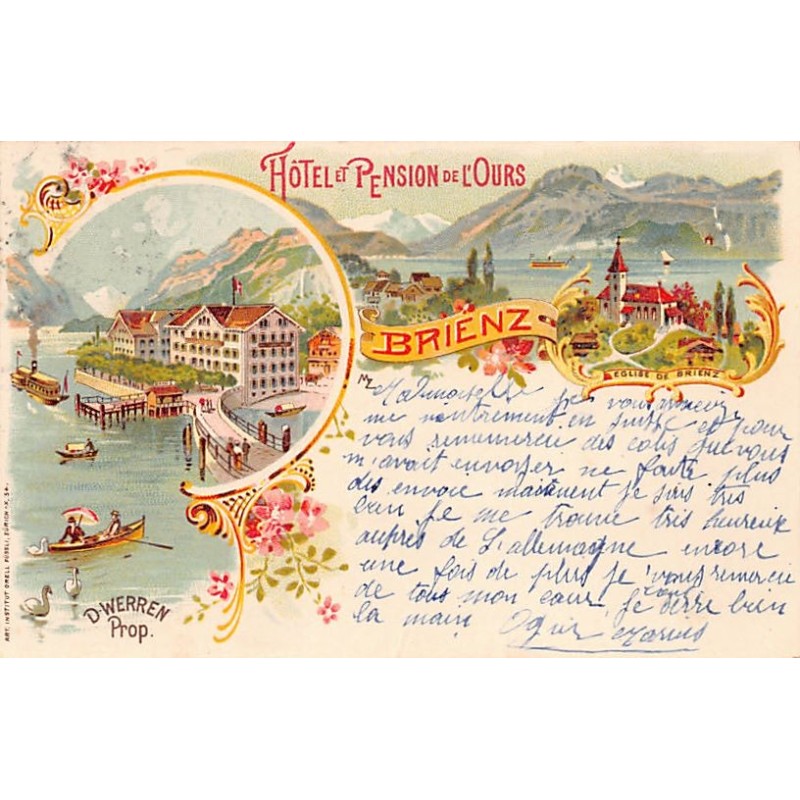 HÔTEL ET PENSION DE L'OURS
BRIENZ
EGLISE DE BRIENZ
D. WERREN
Prop.
ART. INSTITUT ORELL FÜSSLI, ZÜRICH
Madmoiselle je vous
me en suisse et pour
vous rememerciu des colis que vous
m'avait envoyer ne faute plus
des envoie maintenent je suis très
bien je me trouve très heureux
auprès de L'allemagne encore
une fois de plus je vous remercie
de tous mon cœur je vous serre bien
la main Ogier